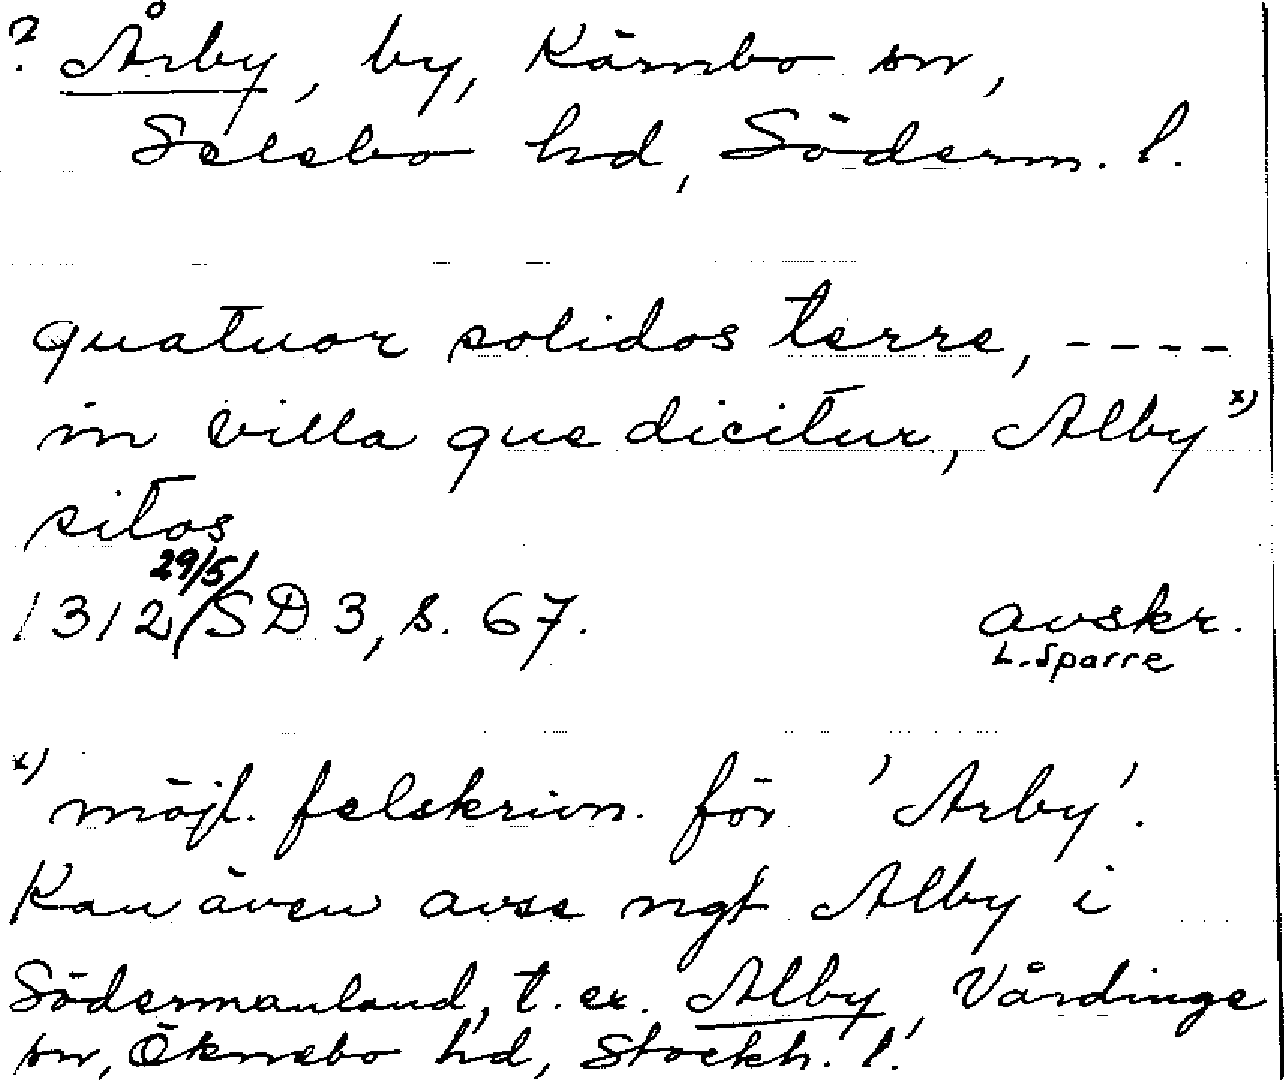 ? Årby, by, Kärnbo sn,
Selebo hd, Söderm. l.
quatuor solidos terre, ----
in villa que dicitur, Alby x)
sitos
29/5
1312 (SD 3, s. 67. avskr.
L. Sparre
x) möjl. felskrivn. för 'Arby'.
Kan även avse ngt Alby i
Södermanland, t. ex. Alby, Vårdinge
sn, Öknebo hd, Stockh. l.